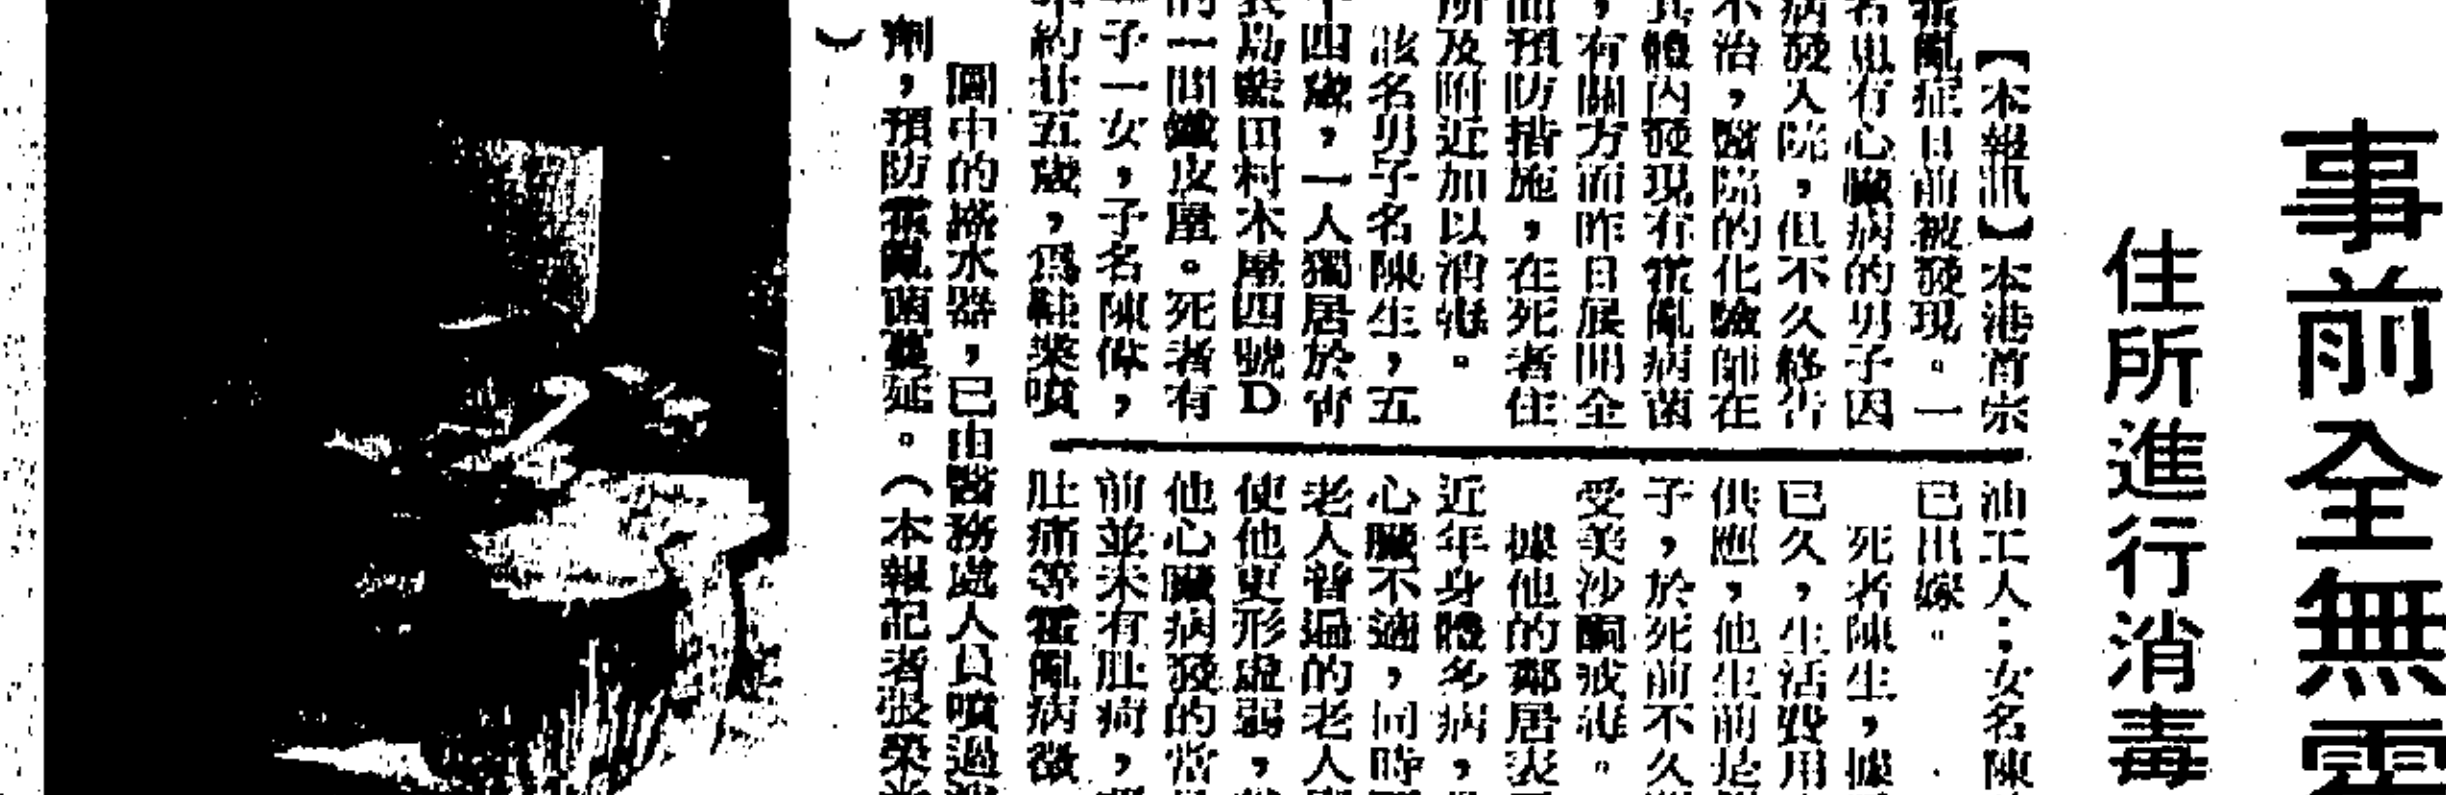 事前全無
住所進行消毒
【本報訊】本港首宗
霍亂症日前被發現。一
名患有心臟病的男子因
病發入院,但不久終告
不治,醫院的化驗師在
其體內發現有霍亂病菌
,有關方面昨日展開全
面預防措施,在死者住
所及附近加以消毒。
該名男子名陳生,五
十四歲,一人獨居於青
衣島藍田村木屋四號D
的一間鐵皮屋。死者有
子一女,子名陳偉,
約廿五歲,爲鞋業噴
油工人;女名陳
已出嫁。
死者陳生,據
已久,生活費用
供應,他生前是
子,於死前不久
受美沙酮戒毒。
據他的鄰居表
近年身體多病,
心臟不適,同時
老人普遍的老人
使他更形虛弱,
他心臟病發的當
前並未有肚痾,
肚痛等霍亂病徵
圖中的搭水器,已由醫務處人員噴過
劑,預防霍亂菌蔓延。(本報記者張榮
)